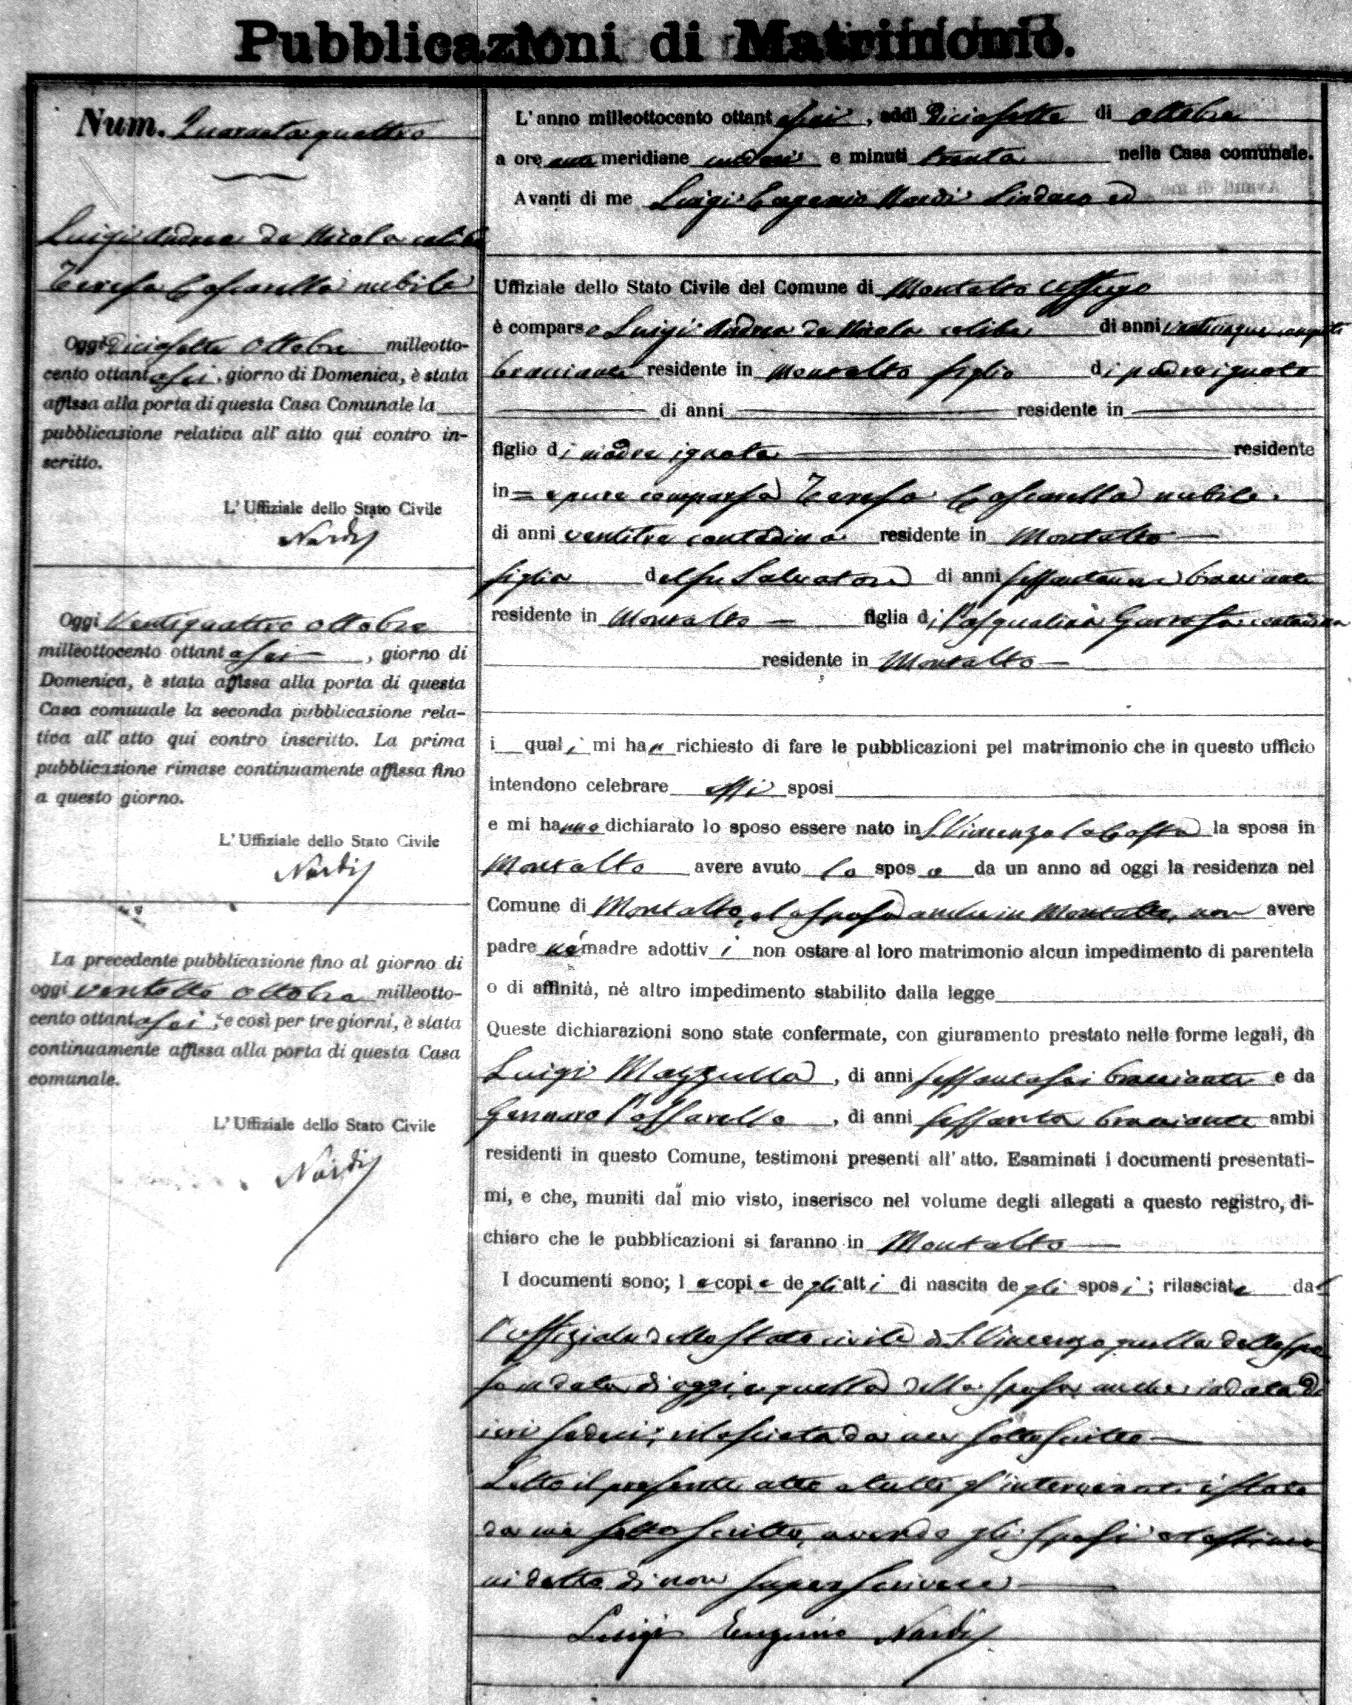 Pubblicazioni di Matrimonio.
Num. Quarantaquattro
Luigi Andrea de Nicola celibe
Teresa Cascarella nubile
Oggi diciasette Ottobre milleotto-
cento ottantasei, giorno di Domenica, è stata
affissa alla porta di questa Casa Comunale la
pubblicazione relativa all' atto qui contro in-
scritto.
L' Uffiziale dello Stato Civile
Nardi
Oggi Ventiquattro ottobre
milleottocento ottantasei, giorno di
Domenica, è stata affissa alla porta di questa
Casa comuuale la seconda pubblicazione rela-
tiva all' atto qui contro inscritto. La prima
pubblicazione rimase continuamente affissa fino
a questo giorno.
L' Uffiziale dello Stato Civile
Nardi
La precedente pubblicazione fino al giorno di
oggi ventotto ottobre milleotto-
cento ottantasei, e così per tre giorni, è stata
continuamente affissa alla porta di questa Casa
comunale.
L' Uffiziale dello Stato Civile
Nardi
L' anno milleottocento ottantasei, addì diciasette di Ottobre
a ore antemeridiane undeci e minuti trenta nella Casa comunale.
Avanti di me Luigi Eugenio Nardi Sindaco ed
Uffiziale dello Stato Civile del Comune di Montalto Uffugo
è comparso Luigi Andrea de Nicola celibe di anni venticinque compiti
bracciante residente in Montalto figlio di padre ignoto
di anni residente in
figlio di madre ignota residente
in = e pure comparsa Teresa Cascarella nubile.
di anni ventitre contadina residente in Montalto
figlia del fu Salvatore di anni sessantanove bracciante
residente in Montalto figlia di Pasqualina contadina
residente in Montalto
i quali mi han richiesto di fare le pubblicazioni pel matrimonio che in questo ufficio
intendono celebrare essi sposi
e mi hanno dichiarato lo sposo essere nato in S. Vincenzo la Costa la sposa in
Montalto avere avuto lo sposo da un anno ad oggi la residenza nel
Comune di Montalto, e la sposa anche in Montalto, non avere
padre nè madre adottivi non ostare al loro matrimonio alcun impedimento di parentela
o di affinità, nè altro impedimento stabilito dalla legge
Queste dichiarazioni sono state confermate, con giuramento prestato nelle forme legali, da
Luigi Mazzulla, di anni sessantasei bracciante e da
Gennaro Passarello, di anni sessanta bracciante ambi
residenti in questo Comune, testimoni presenti all' atto. Esaminati i documenti presentati-
mi, e che, muniti dal mio visto, inserisco nel volume degli allegati a questo registro, di-
chiaro che le pubblicazioni si faranno in Montalto
I documenti sono; le copie degli atti di nascita degli sposi; rilasciate dal
l'uffiziale dello Stato civile di S. Vincenzo quella dello spo
so in data di oggi, e quella della sposa, anche in data di
ieri sedeci, rilasciata da me sottoscritto
Letto il presente atto a tutti gl'intervenuti è stato
da me sottoscritto, avendo gli sposi e testimo
ni detto di non saper scrivere
Luigi Eugenio Nardi